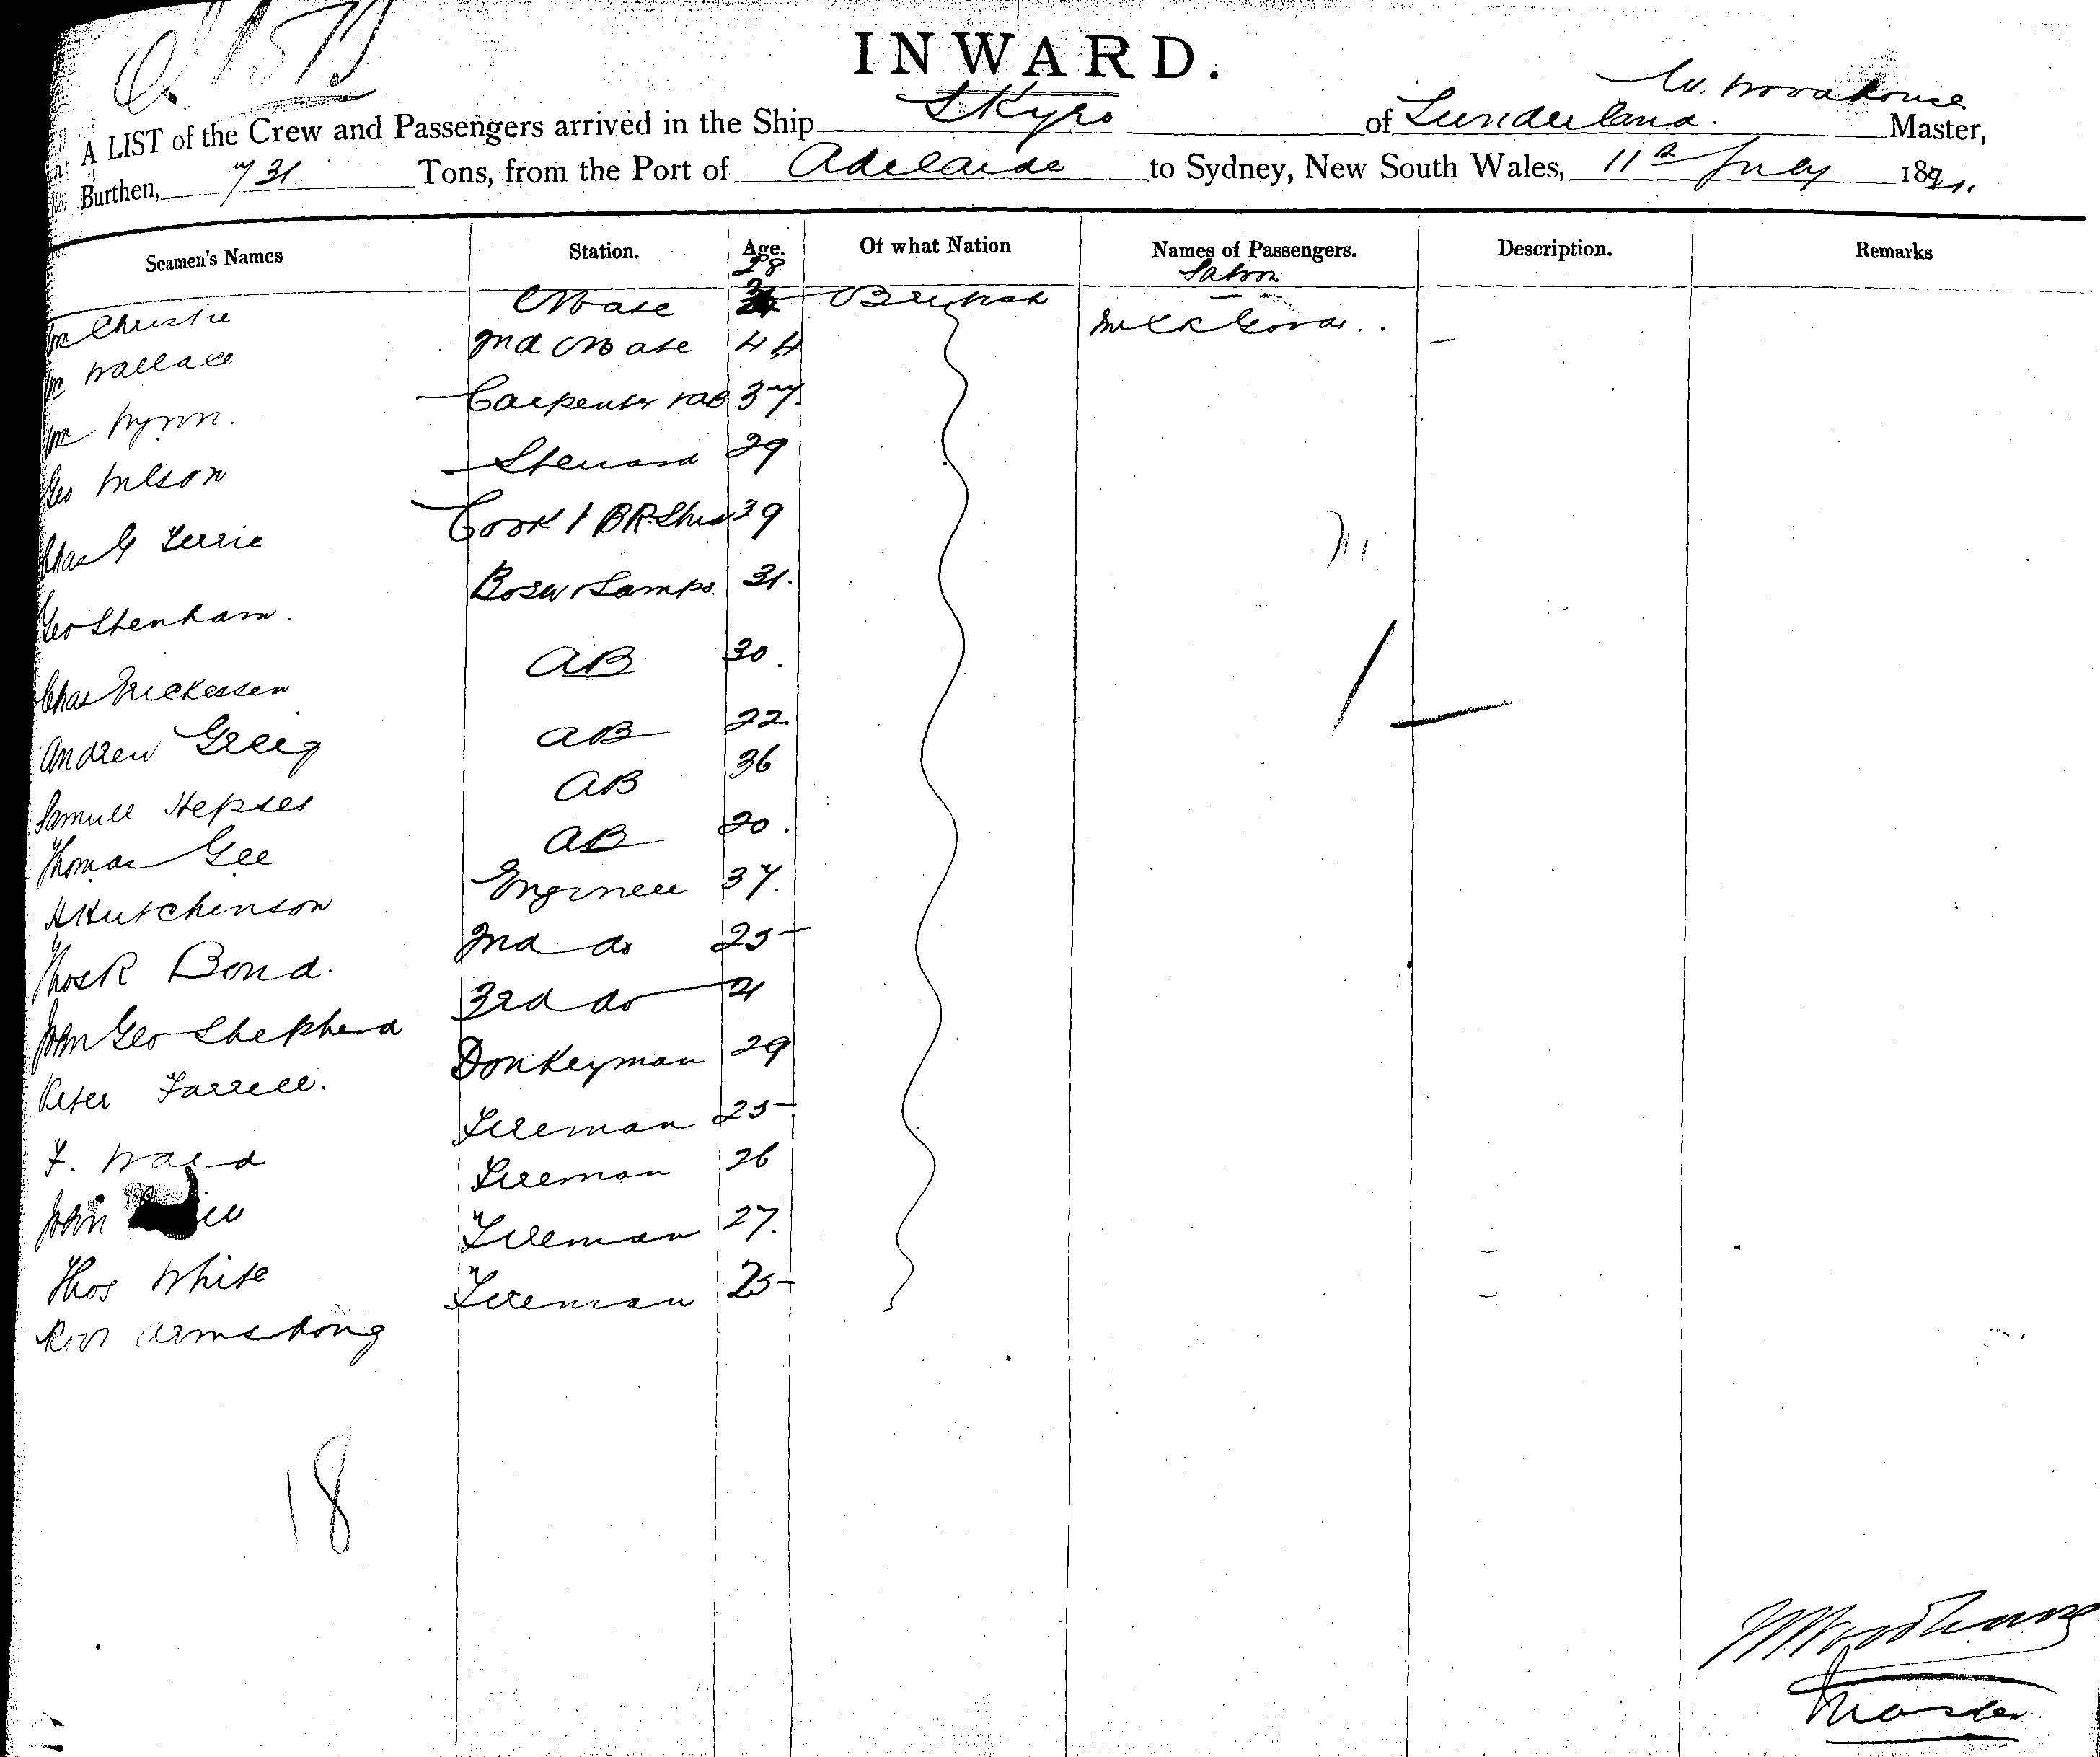 INWARD.
W. Woodhouse
A LIST of the Crew and Passengers arrived in the Ship Skyro of Sunderland. Master,
Burthen, 731 Tons, from the Port of Adelaide to Sydney, New South Wales, 11th July 1891.
Seamen's Names Station. Age. Of what Nation Names of Passengers. Description. Remarks
28 Saloon
Wm Christie Mate British
Wm Wallace 2nd Mate 44
Wm Wynn. Carpenter & AB 37
Geo Wilson Steward 29
Chas G Ferrie Cook 39
Geo Stenham. Bosn & Lamps. 31.
Chas Erickessen AB 30.
Andrew Greig AB 22.
Samuel AB 36
Thomas Gee AB 20.
H Hutchinson Engineer 37.
Thos R Bond. 2nd do 25
John Geo Shepherd 3rd do 21
Peter Farrell. Donkeyman 29
F. Ward Fireman 25
John Fireman 26
Thos White Fireman 27.
Robt Armstrong Fireman 25
18
W Woodhouse
Master